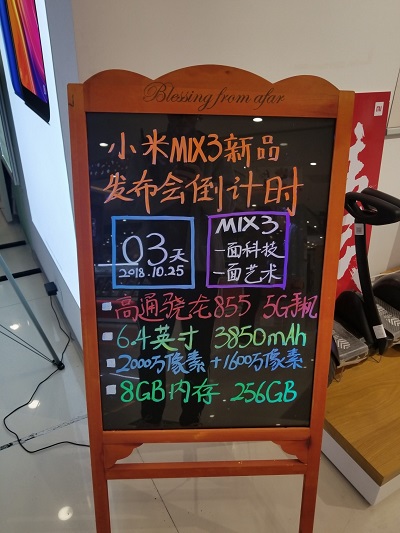 Blessing from afar
小米MIX3新品
发布会倒计时
03天
2018.10.25
MIX3
一面科技
一面艺术
高通骁龙855 5G手机
6.4英寸 3850mAh
2000万像素+1600万像素
8GB内存.256GB
mi